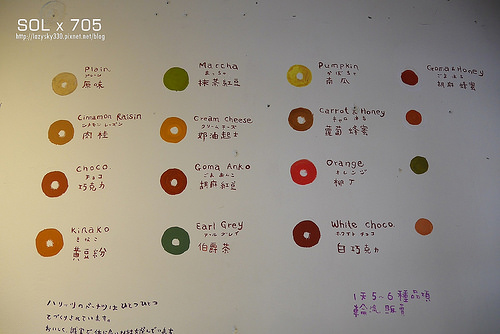 SOL x 705
http://lazysky330.pixnet.net/blog
Plain
プレーン
原味
Maccha
まっちゃ
抹茶紅豆
Pumpkin
かぼちゃ
南瓜
Goma & Honey
胡麻 蜂蜜
Cinnamon Raisin
シナモン レーズン
肉桂
Cream cheese
クリーム チーズ
奶油起士
Carrot & Honey
蘿蔔 蜂蜜
Choco
チョコ
巧克力
Goma Anko
ごま あんこ
胡麻紅豆
Orange
オレンジ
柳丁
Kinako
きなこ
黃豆粉
Earl Grey
アールグレイ
伯爵茶
White choco
ホワイト チョコ
白巧克力
ハリッツのドーナツは ひとつひとつ
てづくりされています。
1天5~6種品項
輪流販賣